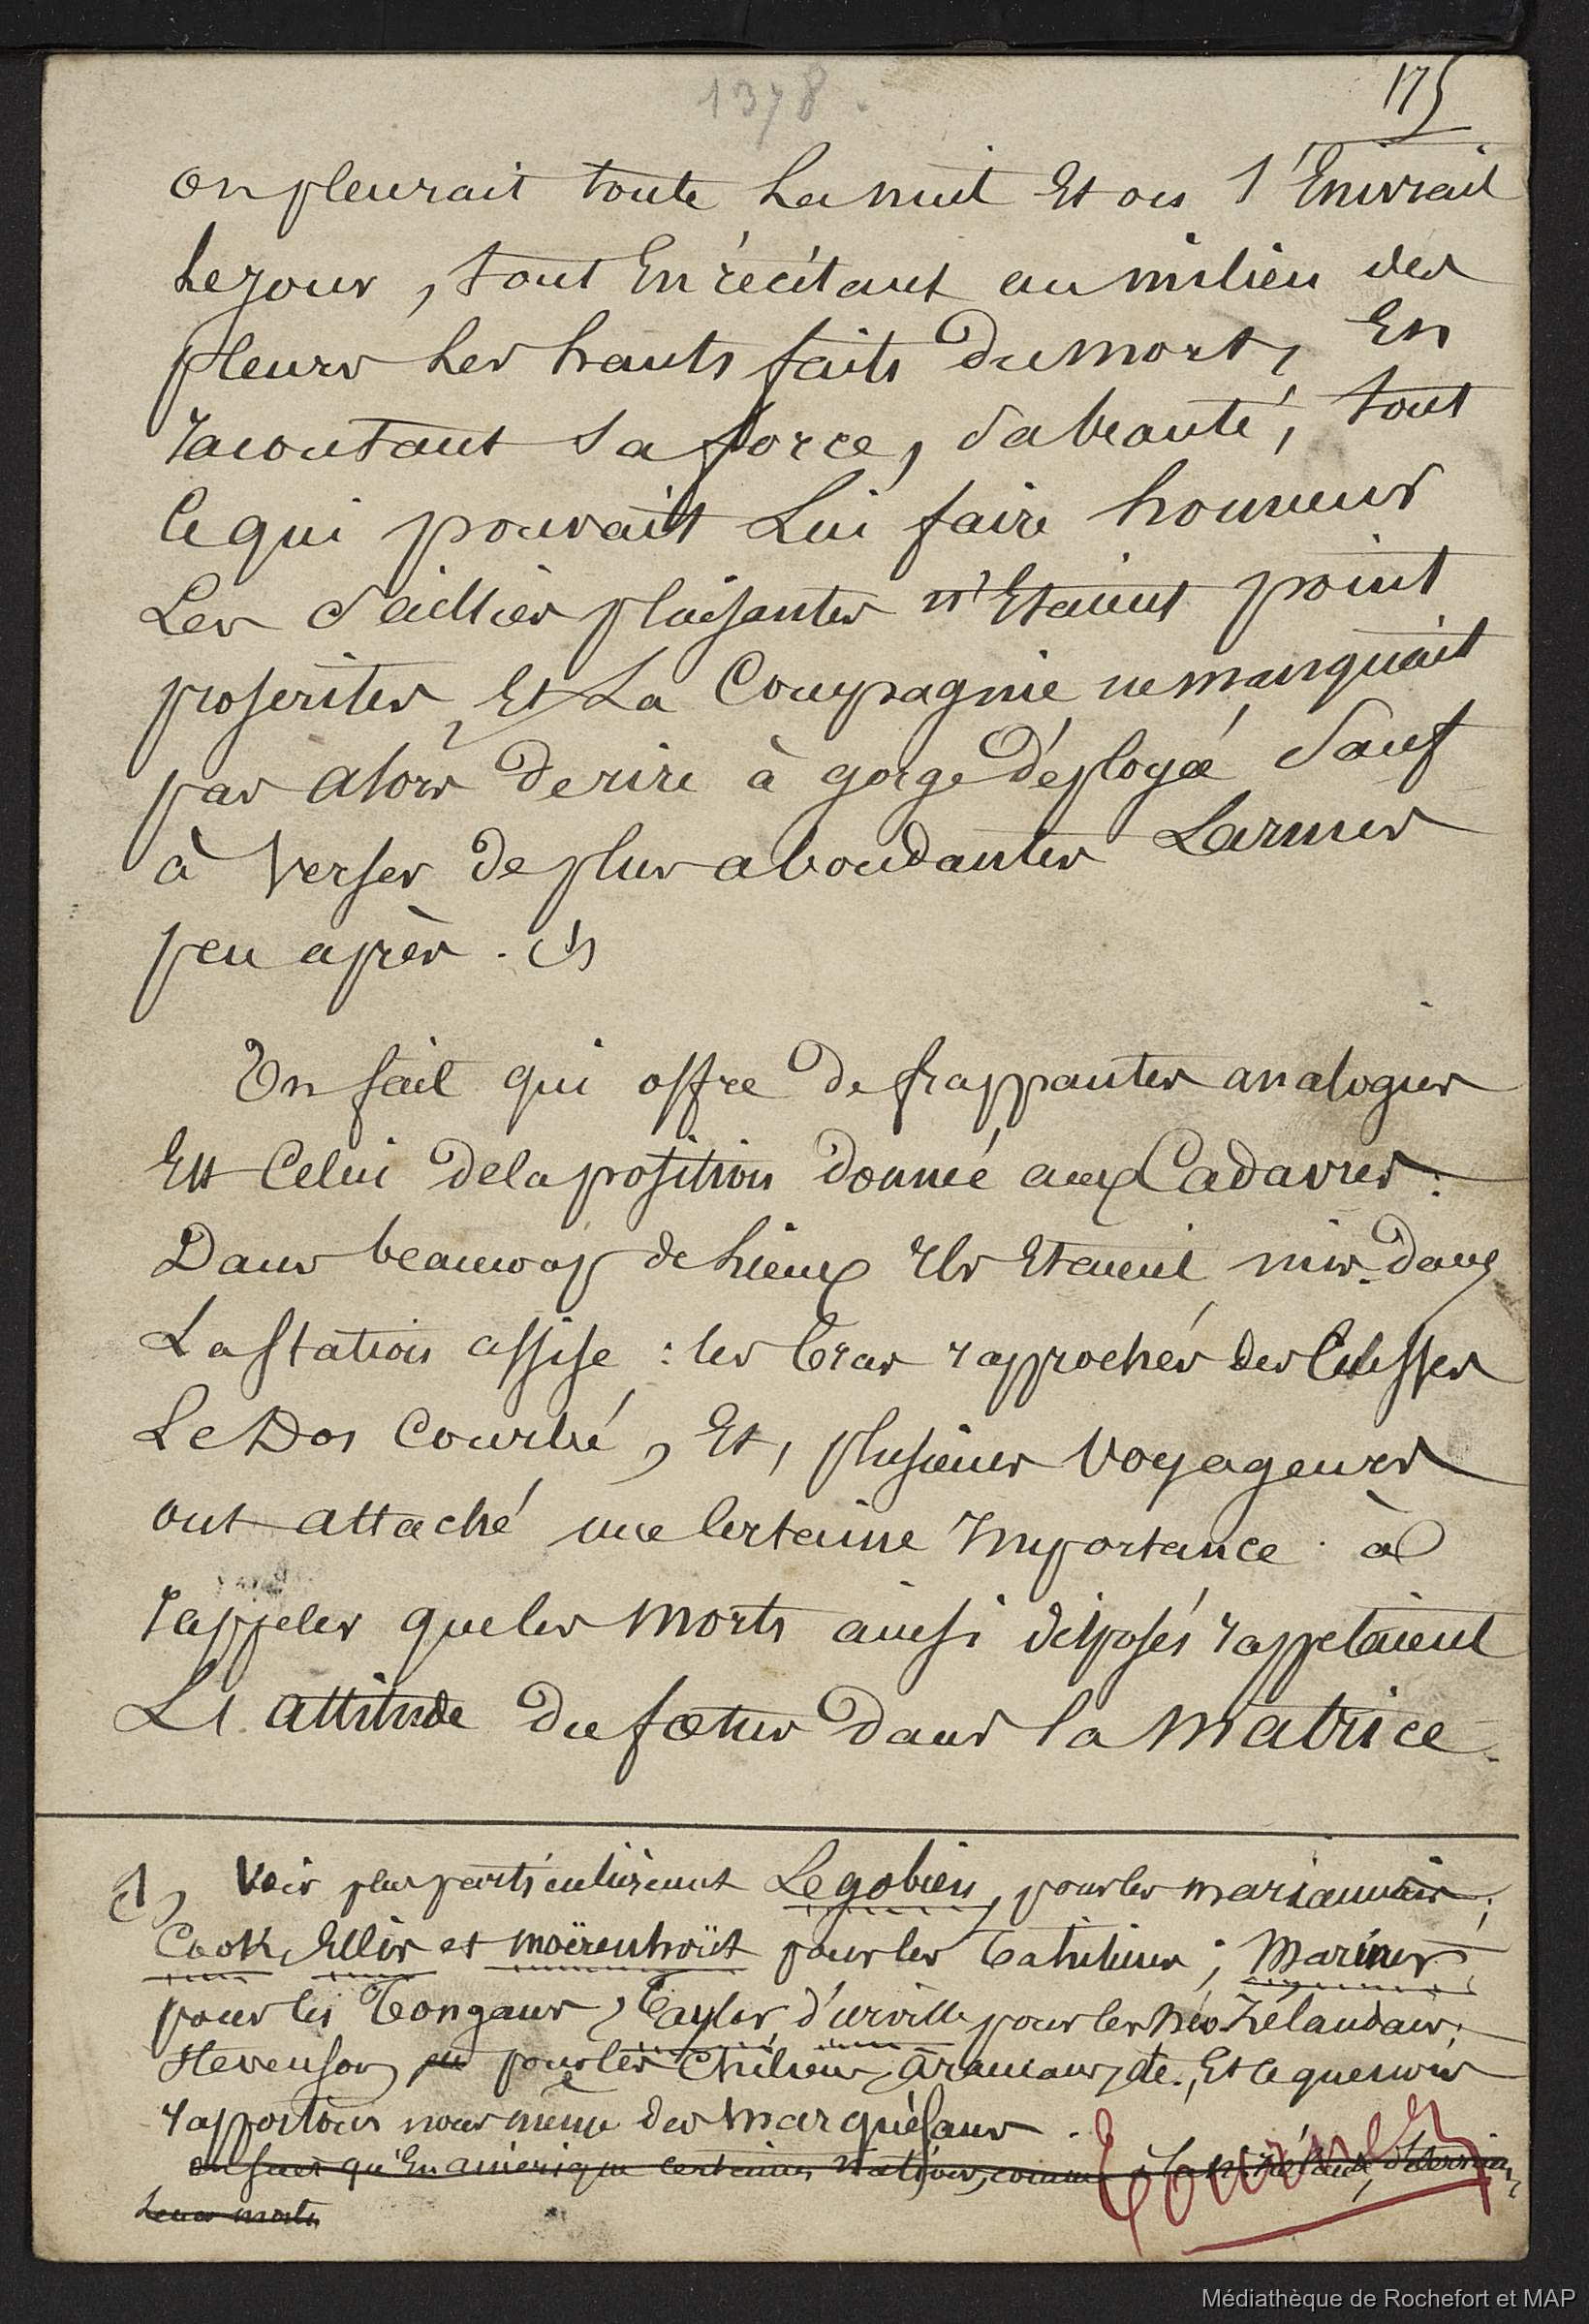 1378.
175
on pleurait toute La nuit Et on s'Enivrait
Le jour, tout En récitant au milieu des
pleurs Les hauts faits Du mort, En
racontant sa force, sa beauté, tout
Ce qui pouvait Lui faire honneur
Les Saillies plaisantes n'Etaient point
proscrites, Et La Compagnie ne manquait
pas alors De rire à gorge Déployée Sauf
à Verser De plus abondantes Larmes
peu après. (1)
Un fait qui offre De frappantes analogies
Est Celui De la position Donnée aux Cadavres:
Dans beaucoup de Lieux Ils Etaient mis Dans
La Station assise : les bras rapprochés Des Cuisses
Le Dos Courbé, Et, plusieurs Voyageurs
ont attaché une Certaine Importance à
rappeler que les Morts ainsi disposés rappelaient
L'attitude Du fœtus Dans la Matrice.
(1) Voir plus particulièrement Legobien, pour les mariannais;
Cook, Ellis et Moërenhoüt pour les Tahitiens; Mariner
pour les Tongans, Taylor d'urville pour les Néo Zélandais;
Stevenson pour les Chiliens, Araucans, etc., Et ce que nous
rapportons nous même des Marquésans.
qu'En amérique certaines Nations, comme à La N. Zélande,
Leurs morts
Tournez
Médiathèque de Rochefort et MAP